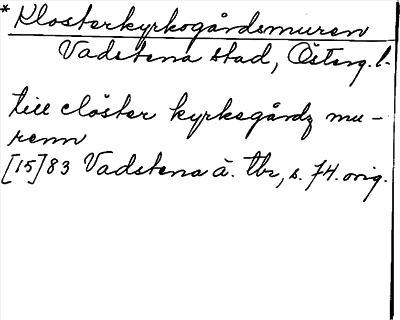 * Klosterkyrkogårdsmuren
Vadstena stad, Österg. l.
till clöster kyrkegårdz mu-
renn
[15]83 Vadstena ä. tbr, s. 74. orig.